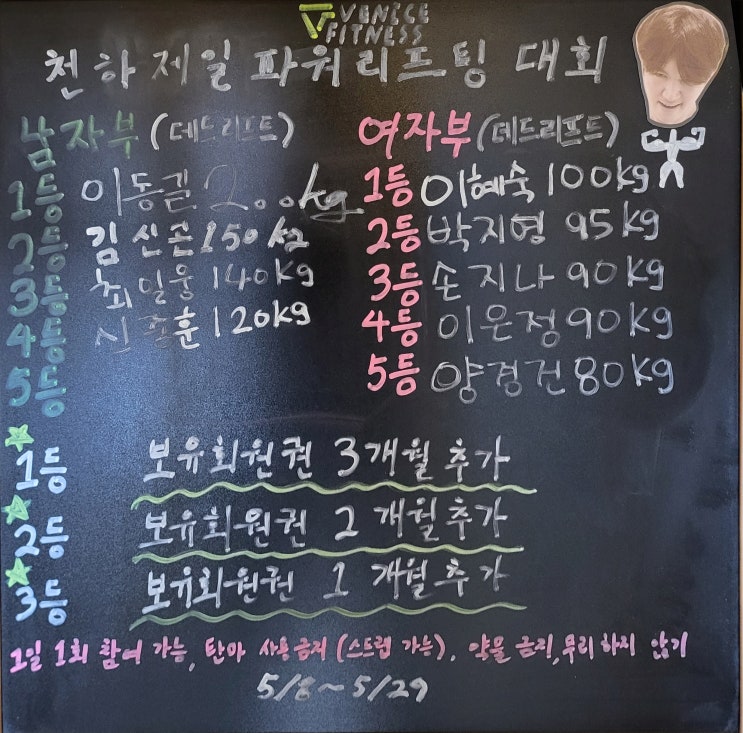 VENICE
FITNESS
천하제일 파워리프팅 대회
남자부 (데드리프트)
1등 이동글 200kg
2등 김신곤 150kg
3등 최일웅 140kg
4등 신 훈 120kg
5등
여자부 (데드리프트)
1등 이혜숙 100kg
2등 박지영 95kg
3등 손지나 90kg
4등 이은정 90kg
5등 양경건 80kg
1등 보유회원권 3개월 추가
2등 보유회원권 2개월 추가
3등 보유회원권 1개월 추가
1일 1회 참여 가능, 탄마 사용금지 (스트랩 가능), 약물 금지, 무리하지 않기
5/8~5/29